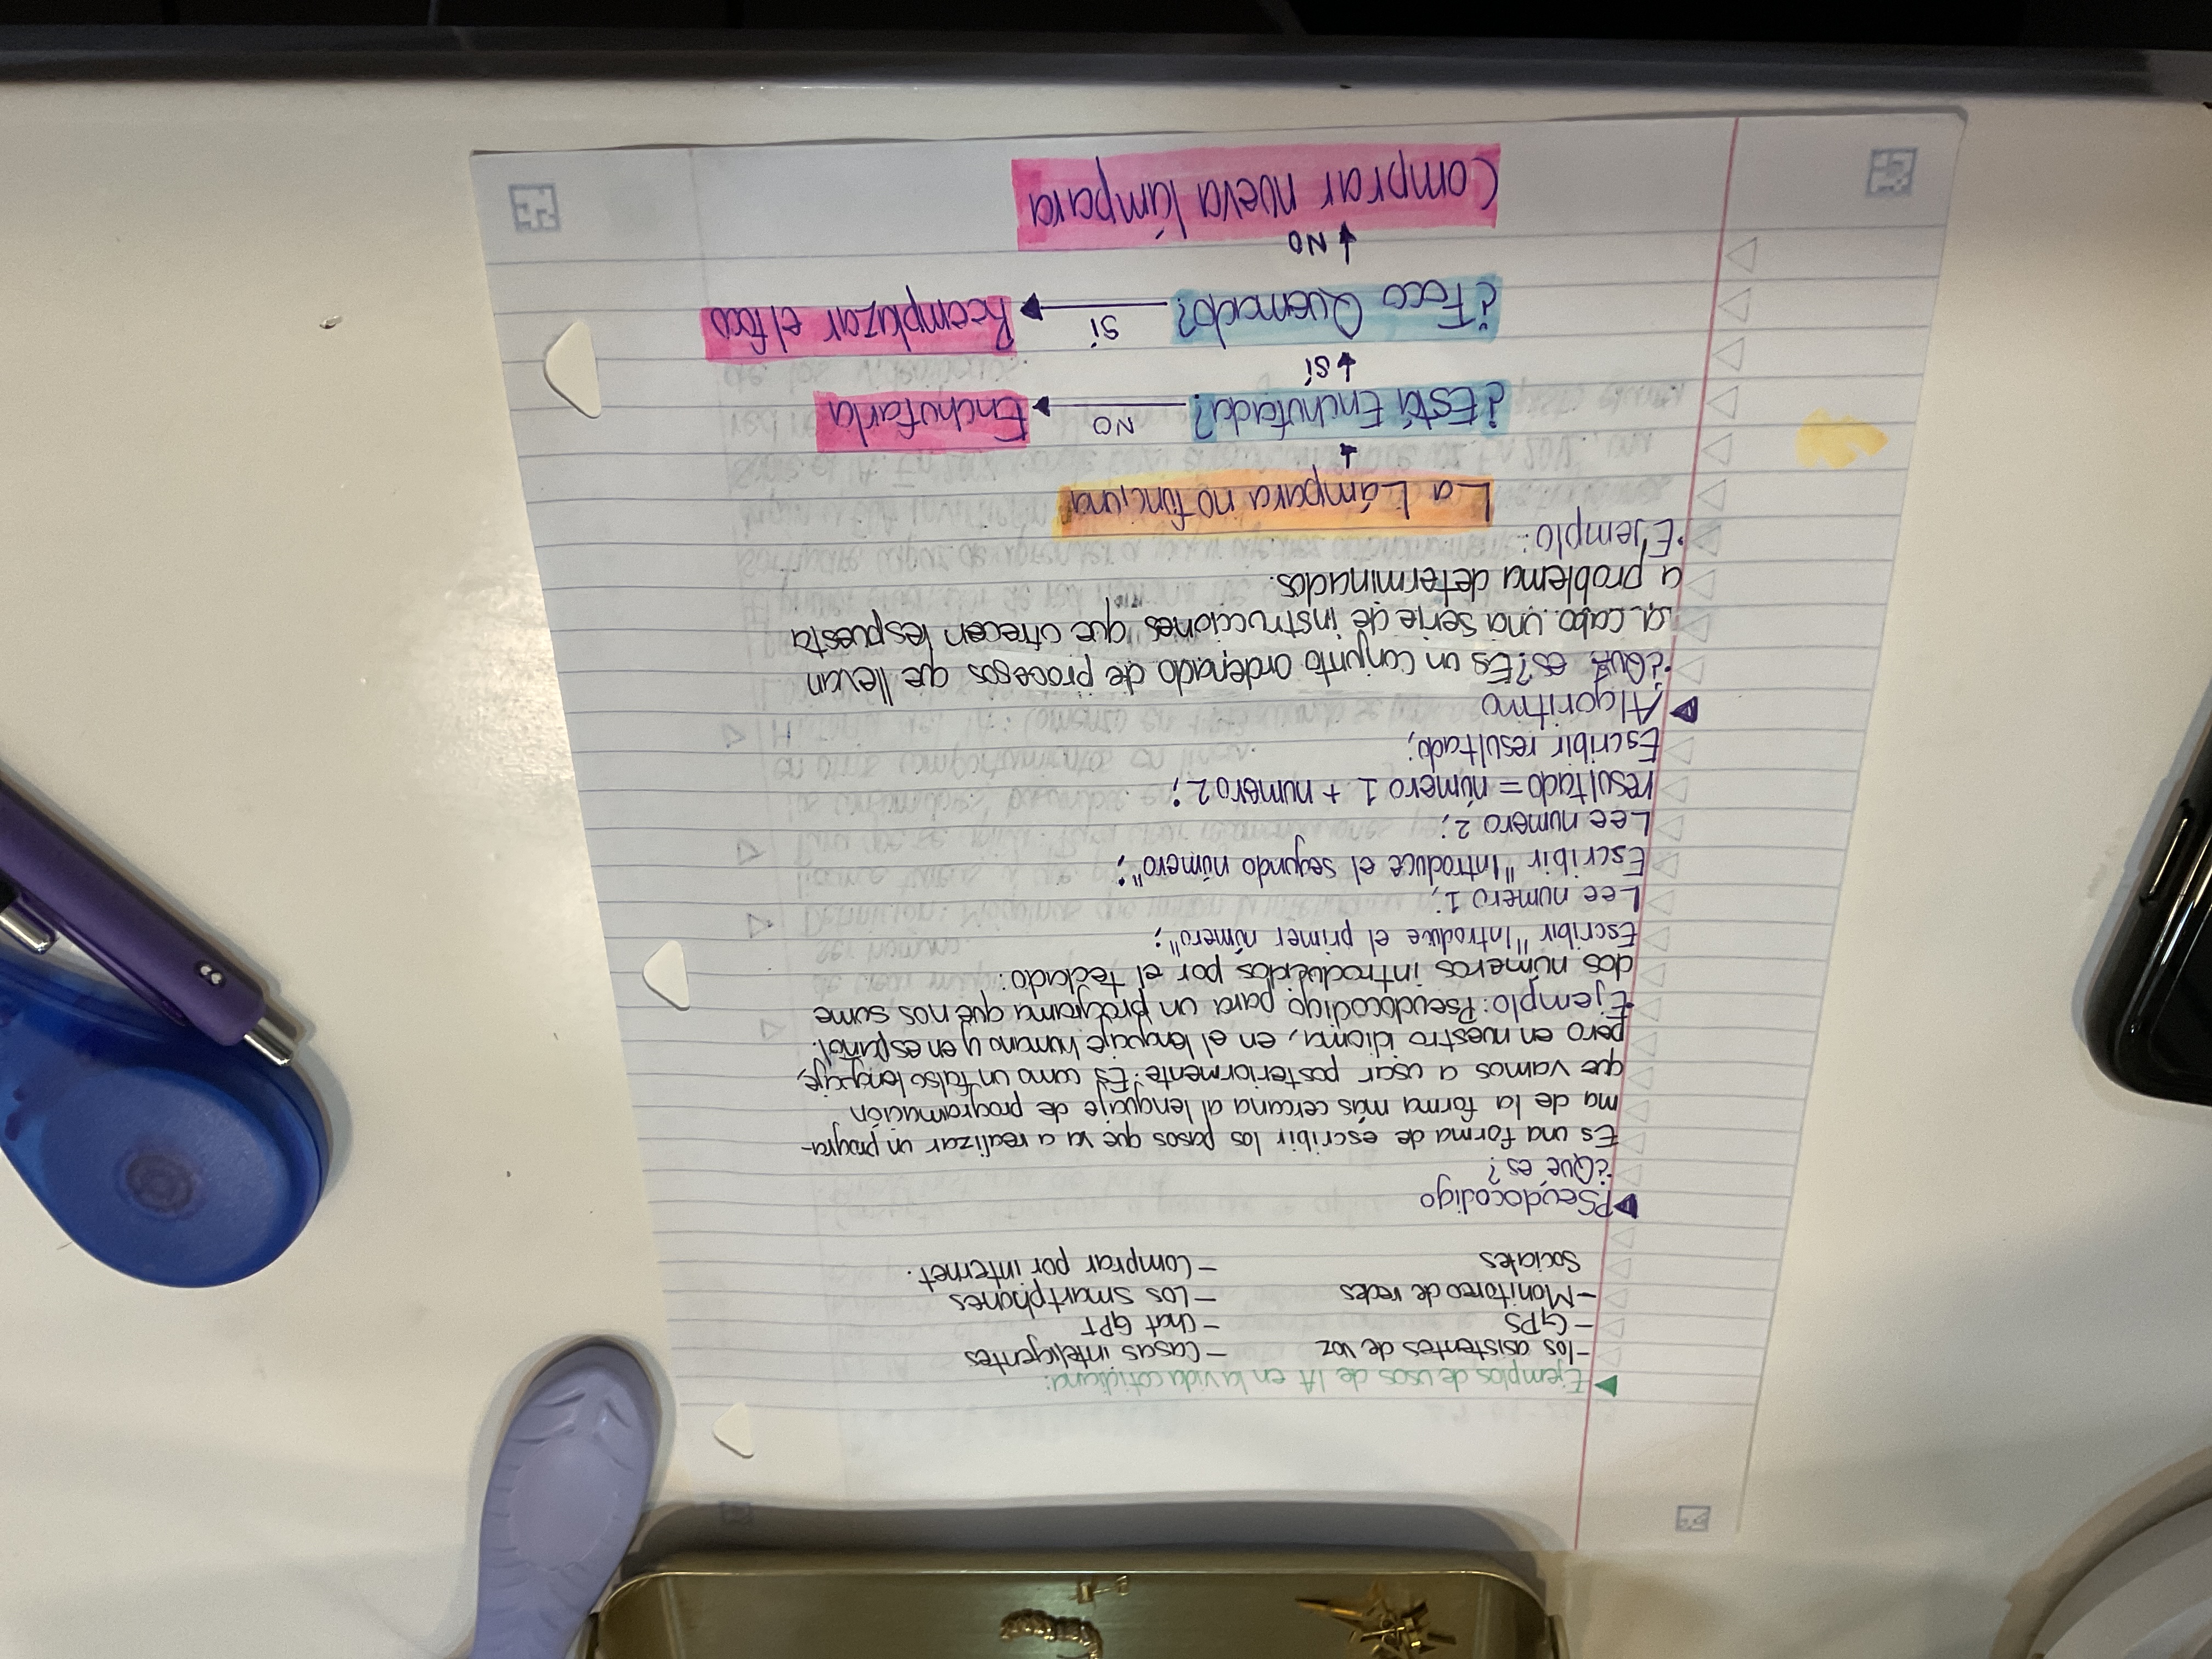 Ejemplos de usos de IA en la vida cotidiana:
-los asistentes de voz -Casas inteligentes
-GPS -Chat GPT
-Monitoreo de redes -Los smartphones
Sociales -Comprar por internet.
PSeudocodigo
¿Que es?
Es una forma de escribir los pasos que va a realizar un progra-
ma de la forma más cercana al lenguaje de programación
que vamos a usar posteriormente. Es como un falso lenguaje,
pero en nuestro idioma, en el lenguaje humano y en español.
Ejemplo: Pseudocodigo para un programa que nos sume
dos números introducidos por el teclado:
Escribir "Introduce el primer número";
Lee numero 1;
Escribir "Introduce el segundo número";
Lee numero 2;
resultado = número 1 + numero 2;
Escribir resultado;
Algoritmo
·¿QUE es? Es un conjunto ordenado de procesos que llevan
a cabo una serie de instrucciones que ofrecen respuesta
a problema determinados.
·Ejemplo:
La Lámpara no funciona
¿Está Enchufada? NO Enchufarla
SÍ
¿Foco Quemado? SÍ Reemplazar el foco
NO
Comprar nueva lámpara